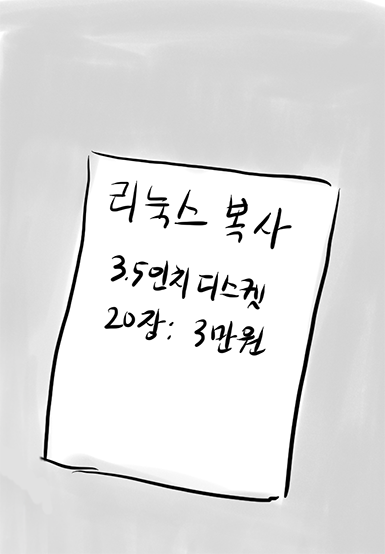 리눅스 복사
3.5인치 디스켓
20장: 3만원